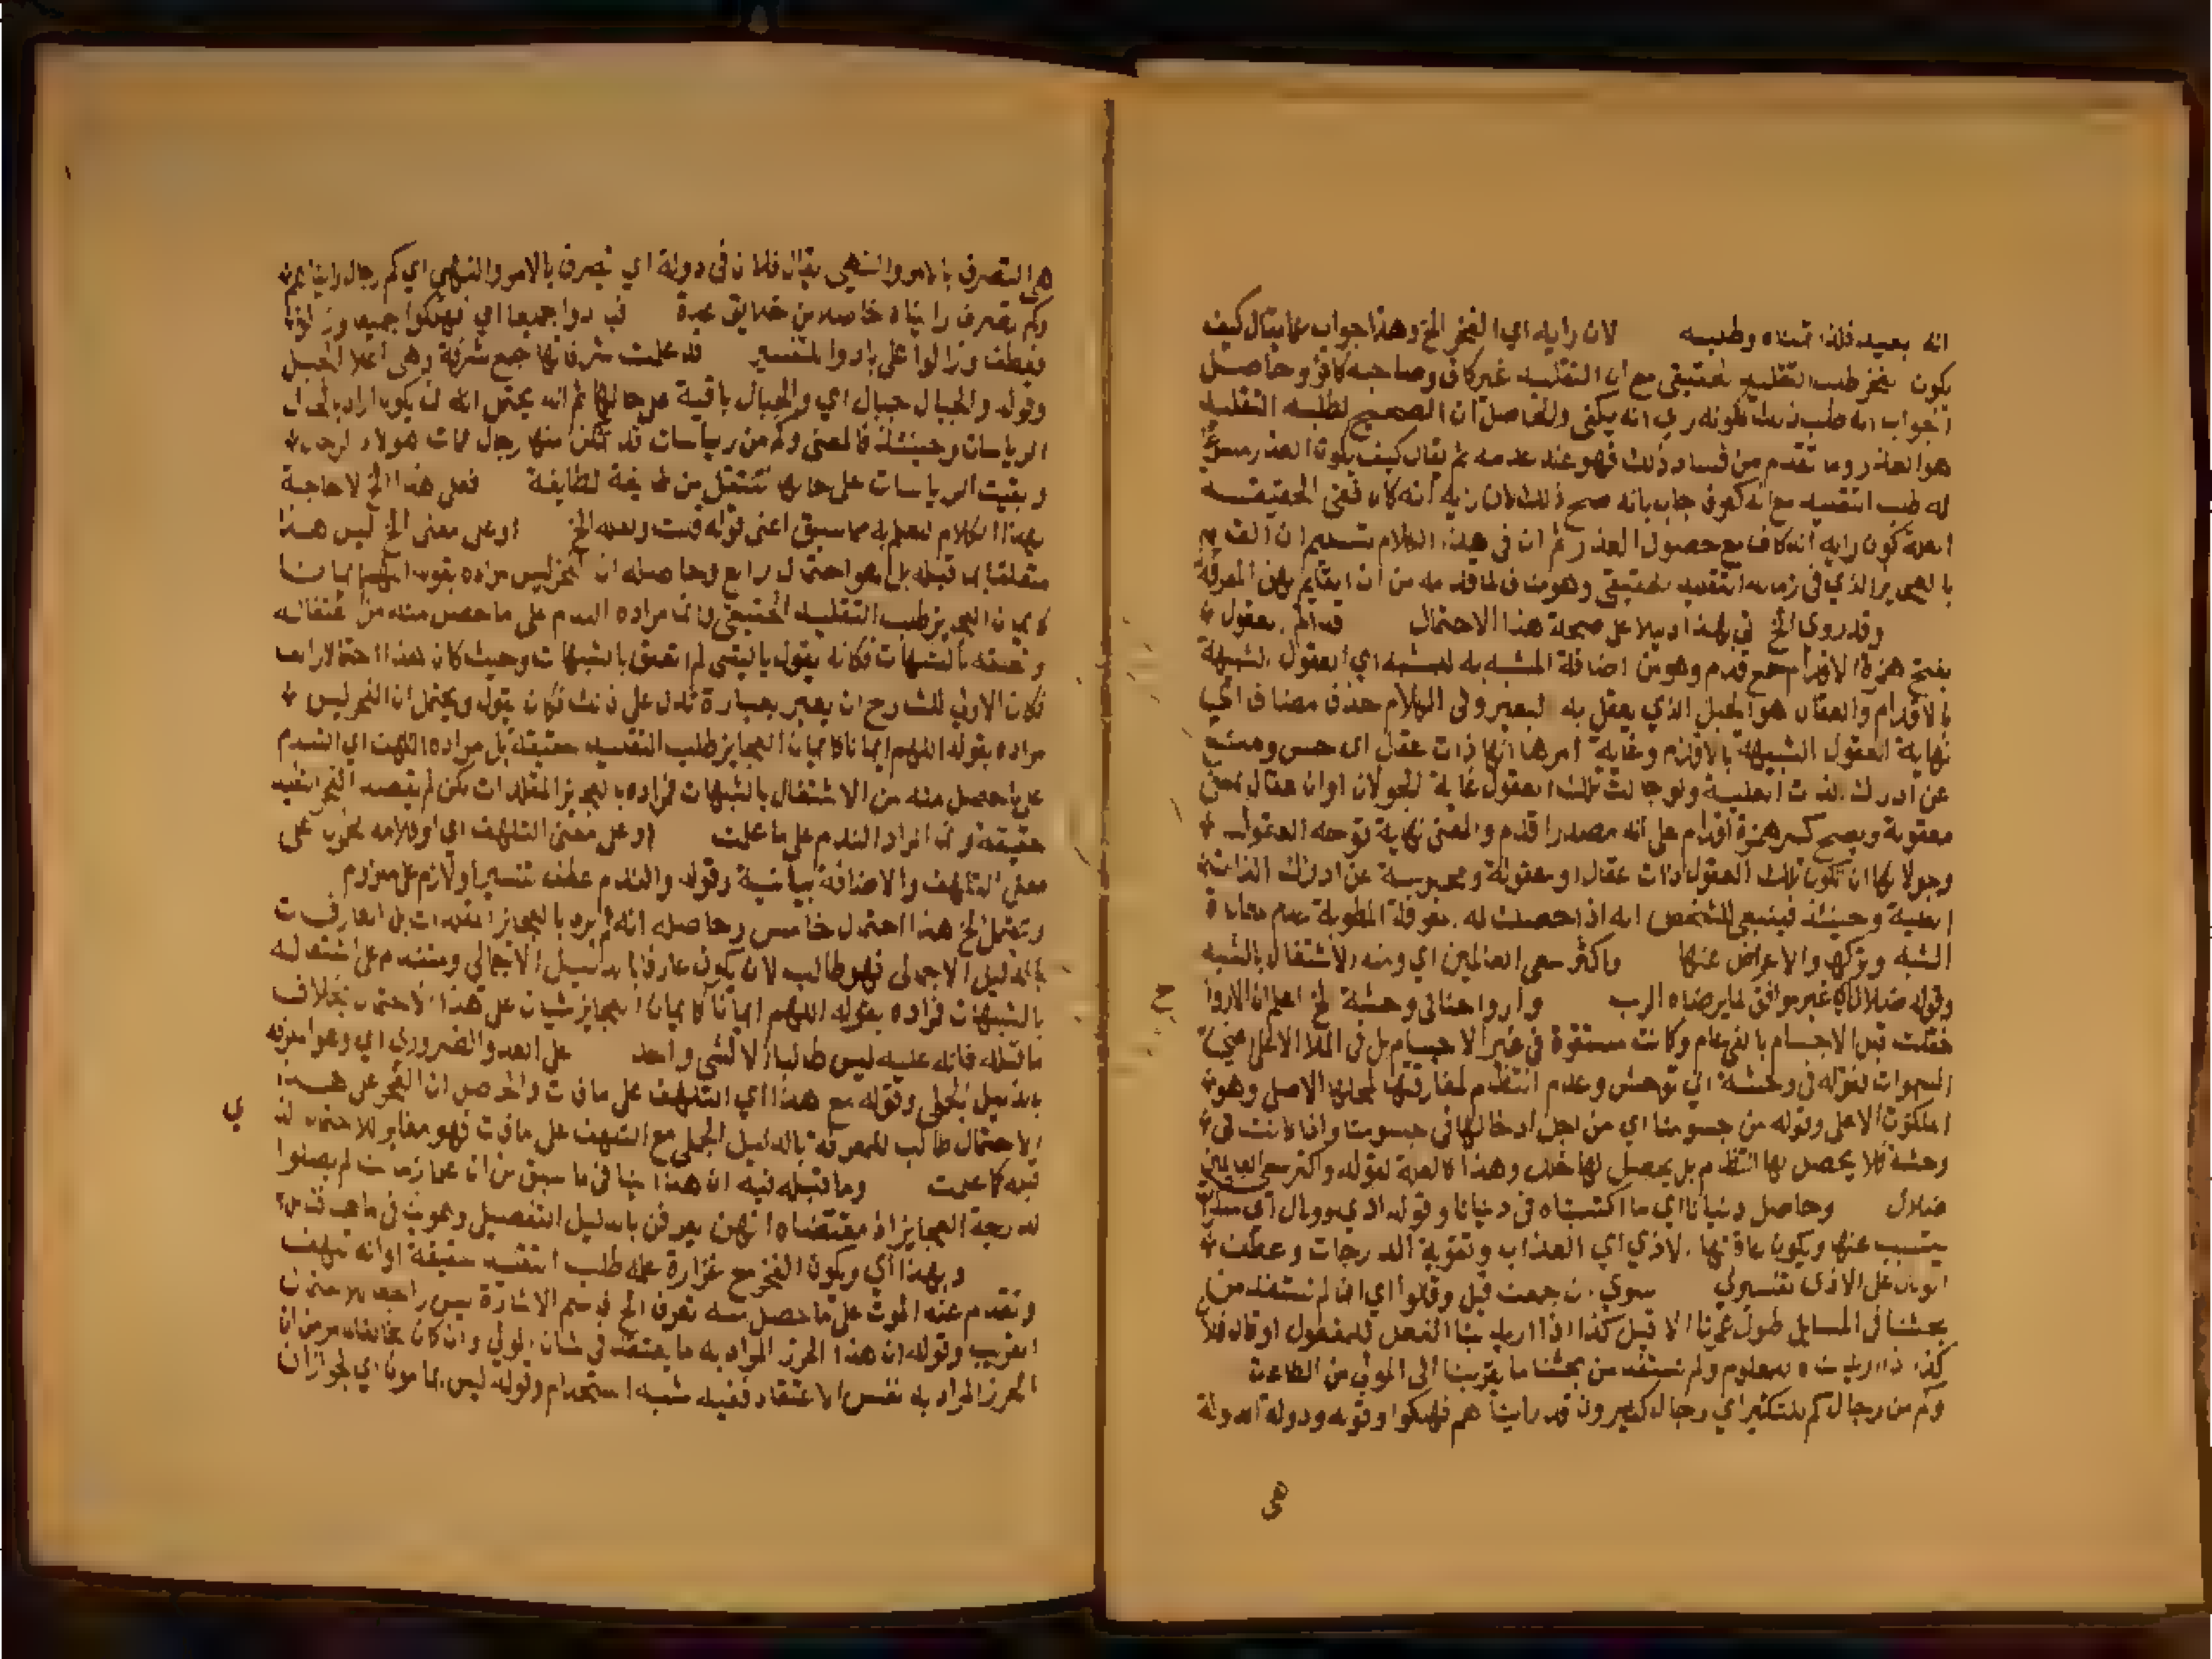 انه بعيد فلذا تمناه وطلبه لان رايه اي الفخر الخ وهذا جواب عما يقال كيف
يكون الفخر طلب التقليد الحقيقي مع ان التقليد غير كاف وصاحبه كافر وحاصل
الجواب انه طلب ذلك لكونه راي انه يكفي والحاصل ان المصحح لطلبه التقليد
هو العذر وما تقدم من فساد ذلك فهو عند عدمه ثم يقال كيف يكون العذر
له طلب التقليد مع انه كفر جاب بانه صح ذلك لان رايه انه كاف فعن الحقيقة
العلة كون رايه انه كاف مع حصول العذر ثم ان في هذا الكلام تسليم ان
بالعجايز الذي في زمانه التقليد الحقيقي وهو مناف لما قدمه من ان ايمانهم المعرفة
وقد روي الخ في هذا دليلا على صحة هذا الاحتمال قدام العقول
بفتح همزة الاقدام جمع قدم وهو من اضافة المشبه به للمشبه اي العقول الشبيهة
بالاقدام والعقال هو الحبل الذي يعقل به البعير وفي الكلام حذف مضاف اي
نهاية العقول الشبيهة بالاقدام وغاية امرها انها ذات عقال اي حبس ومنع
عن ادراك الذات العلية ولو جالت تلك العقول غاية الجولان اوان عقال بمعنى
معقولة ويصح كسر همزة اقدام على انه مصدر اقدم والمعنى نهاية توجه العقول
وجولانها ان تكون تلك العقول ذات عقال او معقولة ومحبوسة عن ادراك الذات
العلية وحينئذ فينبغي للشخص انه اذا حصلت له المعرفة المطلوبة
الشبه وتركها والاعراض عنها واكثر سعي العالمين اي ومنه الاشتغال بالشبه
وقوله ضلال اي غير موافق لما يرضاه الرب وارواحنا في وحشة الخ اعلم ان الاروا
ح
خلقت قبل الاجسام بالفي عام وكانت مستقرة في غير الاجسام بل في الملا الاعلى
السموات لقوله في وحشة اي توحش وعدم انتظام لمفارقتها لمحلها الاصلي وهو
الملكوت الاعلى وقوله من جسومنا اي من اجل ادخالها في جسومنا واذا كانت في
وحشة فلا يحصل بها انتظام بل يحصل لها خلل وهذا كالعلة لقوله واكثر سعي العالمين
ضلال وحاصل دنيانا اي ما اكتسبناه في دنيانا وقوله اذي ووبال اي
يتسبب عنها ويكون عاقبتها الاذي اي العذاب وتفوية الدرجات وعطف
الوبال على الاذى تفسيري سوي ان جمعت قيل وقالوا اي انا لم نستفد من
بحثنا في المسايل طول عمرنا الا قيل كذا اذا اريد بنا الفعل للمفعول او قال فلان
كذا اذا اريد بناه للمعلوم ولم نستفد من بحثنا ما يقربنا الى المولى من الطاعة
وكم من رجال كم للتكثير اي رجال كثيرون قد راينا هم فهلكوا وقوله ودولة الدولة
هي
هي التصرف بالامر والنهي يقال فلان في دولة اي تصرف بالامر والنهي اي كم رجال رايناهم
وكم تصرف رايناه حاصلا من خلايق عدة فبادوا جميعا اي فهلكوا جميعا وزالوا
فعطف وزالوا على بادوا للتفسير قد علت شرفاتها جمع شرفة وهي اعلا الجبل
وقوله والجبال جبال اي والجبال باقية على حالها ثم انه يحتمل انه ان يكون اراد بالجبال
الرياسات وحينئذ فالمعنى وكم من رياسات قد تمكن منها رجال فمات هولاء الرجال
وبقيت الرياسات على حالها تنتقل من طايفة لطايفة فعلى هذا الخ لا حاجة
لهذا الكلام للعلم به مما سبق اعني قوله قلت ولعله الخ او على معنى الخ ليس هذا
متعلقا بما قبله بل هو احتمال رابع وحاصله ان الفخر ليس مراده بقوله اللهم ايمانا
كايمان العجايز طلب التقليد الحقيقي وانما مراده الندم على ما حصل منه من اشتغاله
وتعلقه بالشبهات فكانه يقول يا ليتني لم اتعلق بالشبهات وحيث كان هذا احتمالا رابعا
فكان الاولى للشارح ان يعبر بعبارة تدل على ذلك فكان يقول ويحتمل ان الفخر ليس
مراده بقوله اللهم ايمانا كايمان العجايز طلب التقليد حقيقة بل مراده التلهف اي الندم
على ما حصل منه من الاشتغال بالشبهات فمراده بالعجايز المقلدات لكن لم يقصد الفخر التقليد
حقيقة وانما المراد الندم على ما علمت او على معنى التلهف اي او كلامه محمول على
معنى التلهف والاضافة بيانية وقوله والندم عطف تفسير او لازم على ملزوم
ويحتمل الخ هذا احتمال خامس وحاصله انه لم يرد بالعجايز المقلدات بل العارفات
بالدليل الاجمالي فهو طالب لان يكون عارفا بالدليل الاجمالي ومتندم على اشتغاله
بالشبهات فمراده بقوله اللهم ايمانا كايمان العجايز شيان على هذا الاحتمال بخلاف
ما قبله فانه عليه ليس طالبا الا لشي واحد على العد والضروري اي وهو المعرفة
بالدليل الجملي وقوله مع هذا اي التلهف على ما فات والحاصل ان الفخر على هذا
الاحتمال طالب للمعرفة بالدليل الجملي مع التلهف على ما فات فهو مغاير للاحتمال الذ
ي
قبله كما علمت وما قبله فيه ان هذا ينافي ما سبق من ان علما زمانه لم يصلوا
لدرجة العجايز اذ مقتضاه انهن يعرفن بالدليل التفصيلي وهو مناف ما هنا
وبهذا اي ويكون الفخر مع غزارة علمه طلب التقليد حقيقة او انه تلهف
وتندم عند الموت على ما حصل منه تعرف الخ فاسم الاشارة ليس راجعا للاحتمال
القريب وقوله ان هذا الحرز المراد به ما يعتقد في شان المولى وان كان بخالفه من ان
الحرز المراد به نفس الاعتقاد ففيه شبه استخدام وقوله ليس مامونا اي لجواز ان